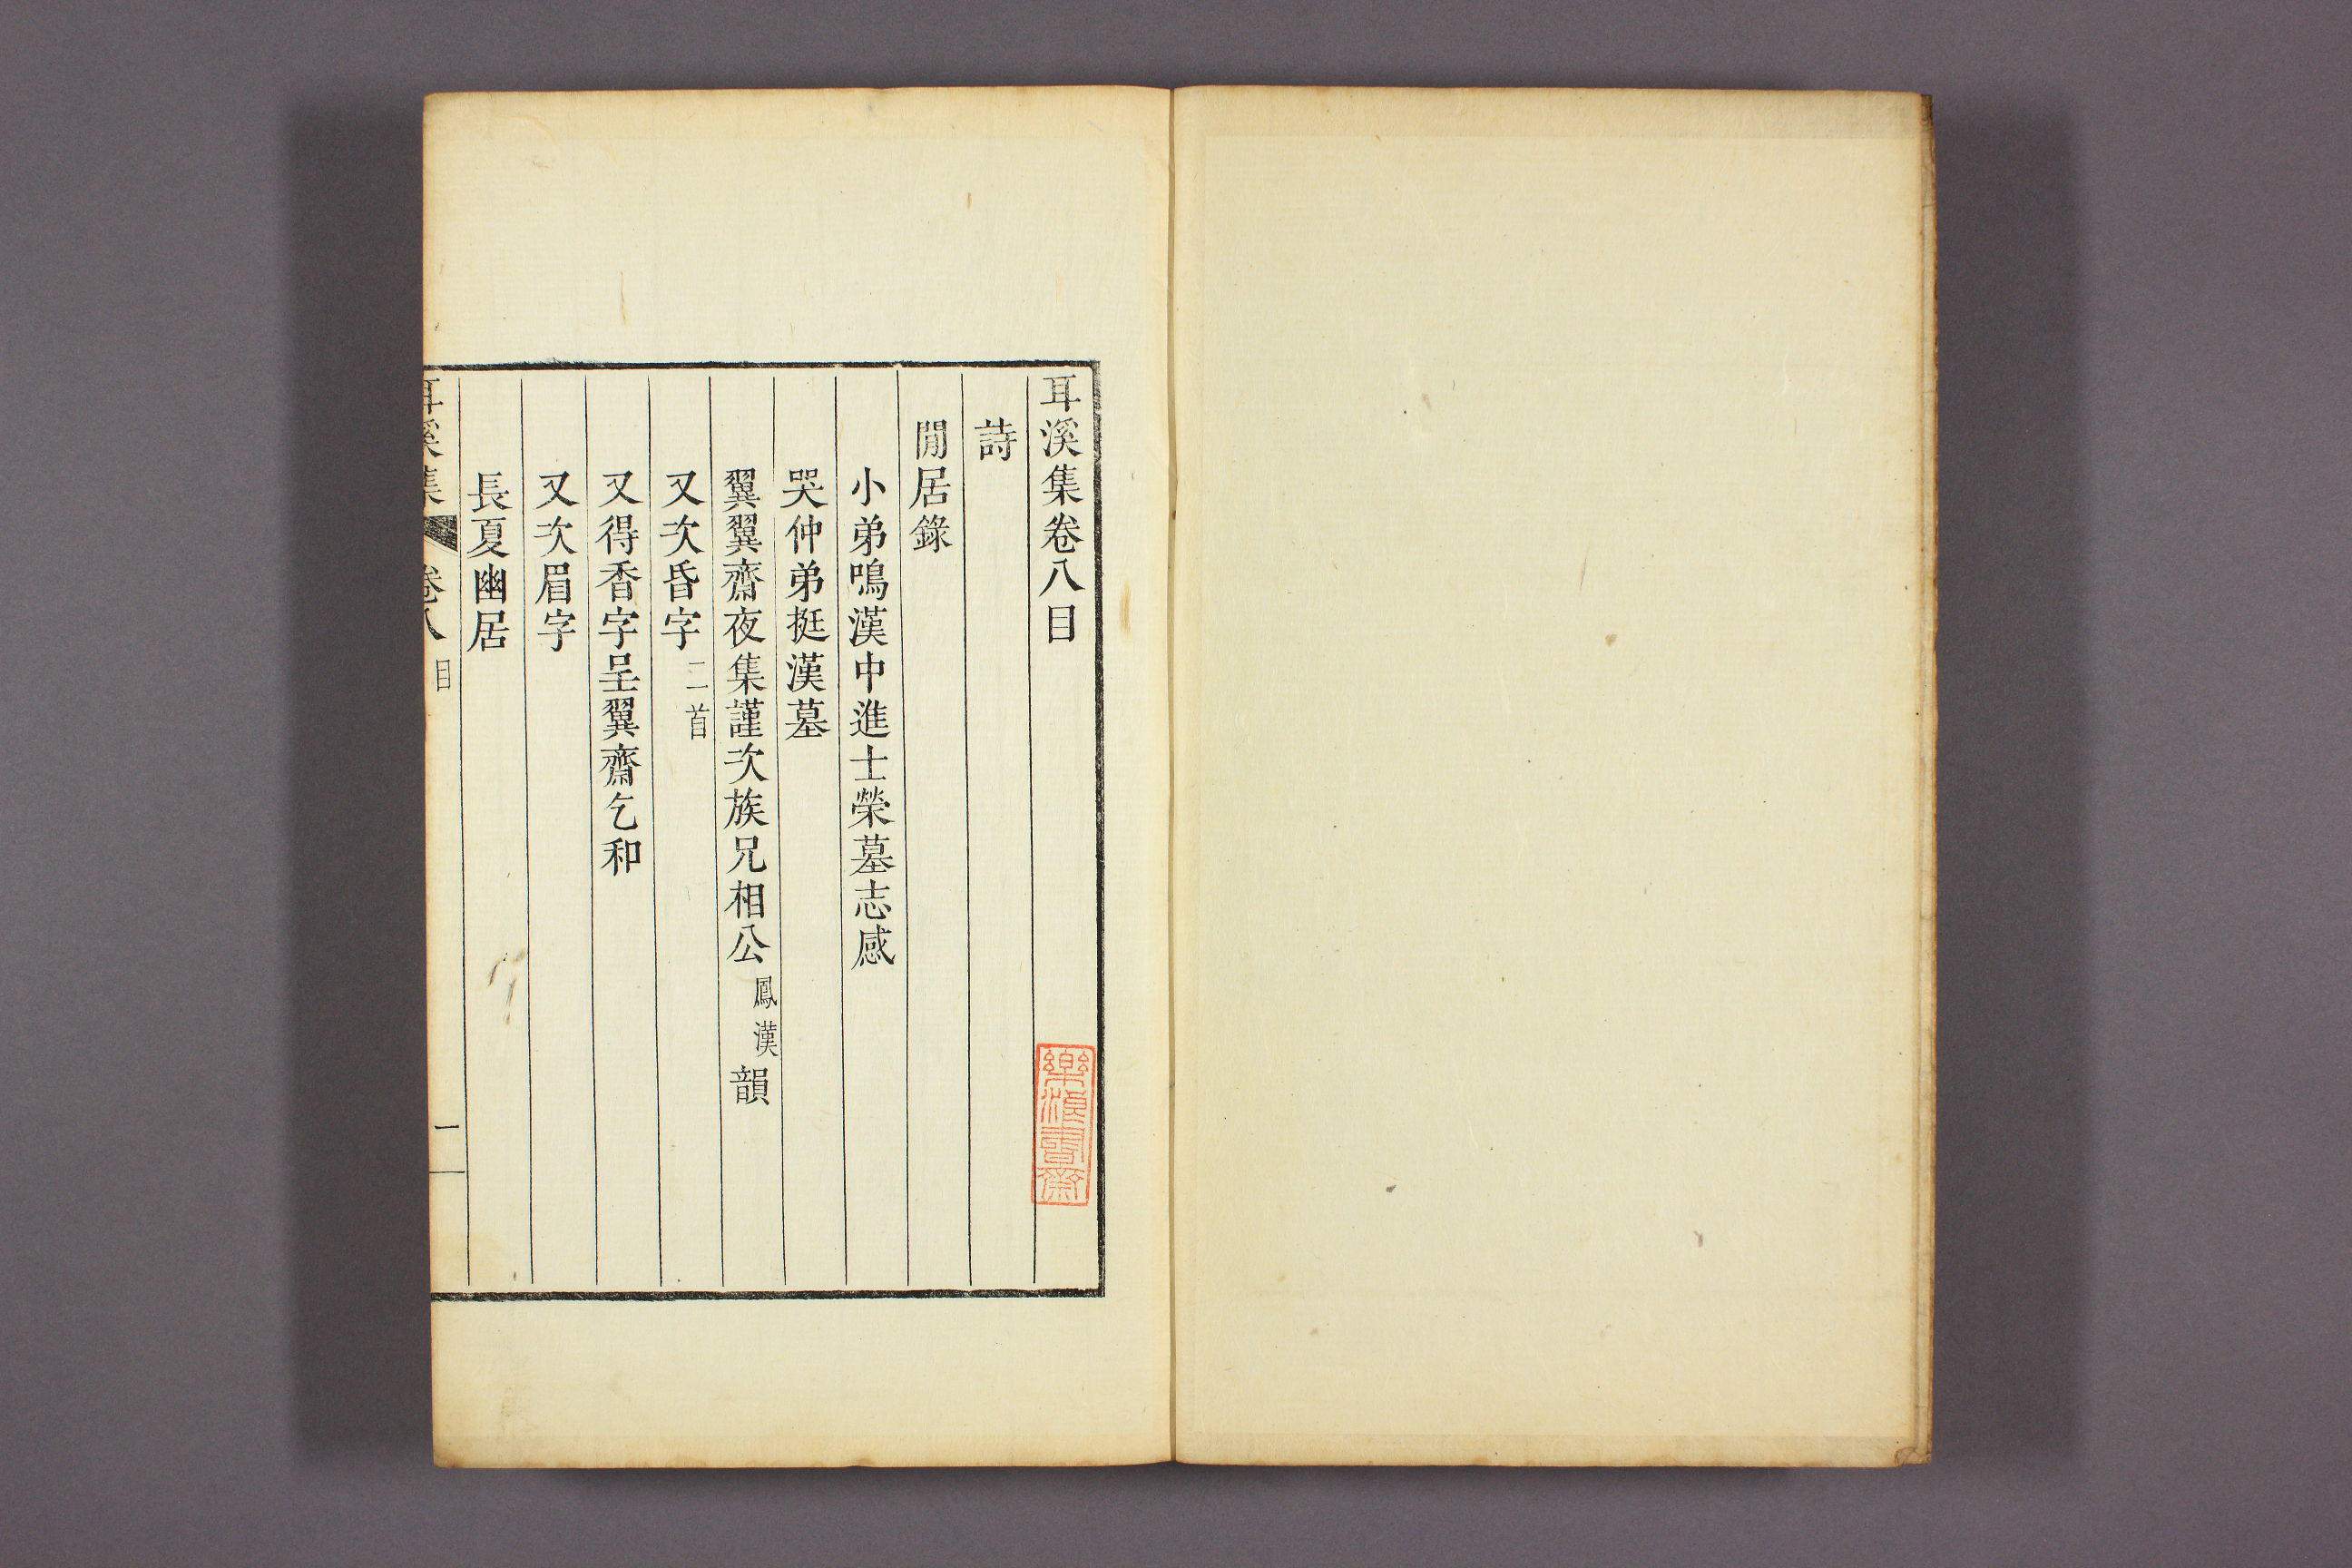 耳溪集卷八目
詩
閒居錄
小弟鳴漢中進士榮墓志感
哭仲弟挺漢墓
翼翼齋夜集謹次族兄相公鳳漢韻
又次昏字二首
又得香字呈翼齋乞和
又次眉字
長夏幽居
耳溪集 卷八 目 一